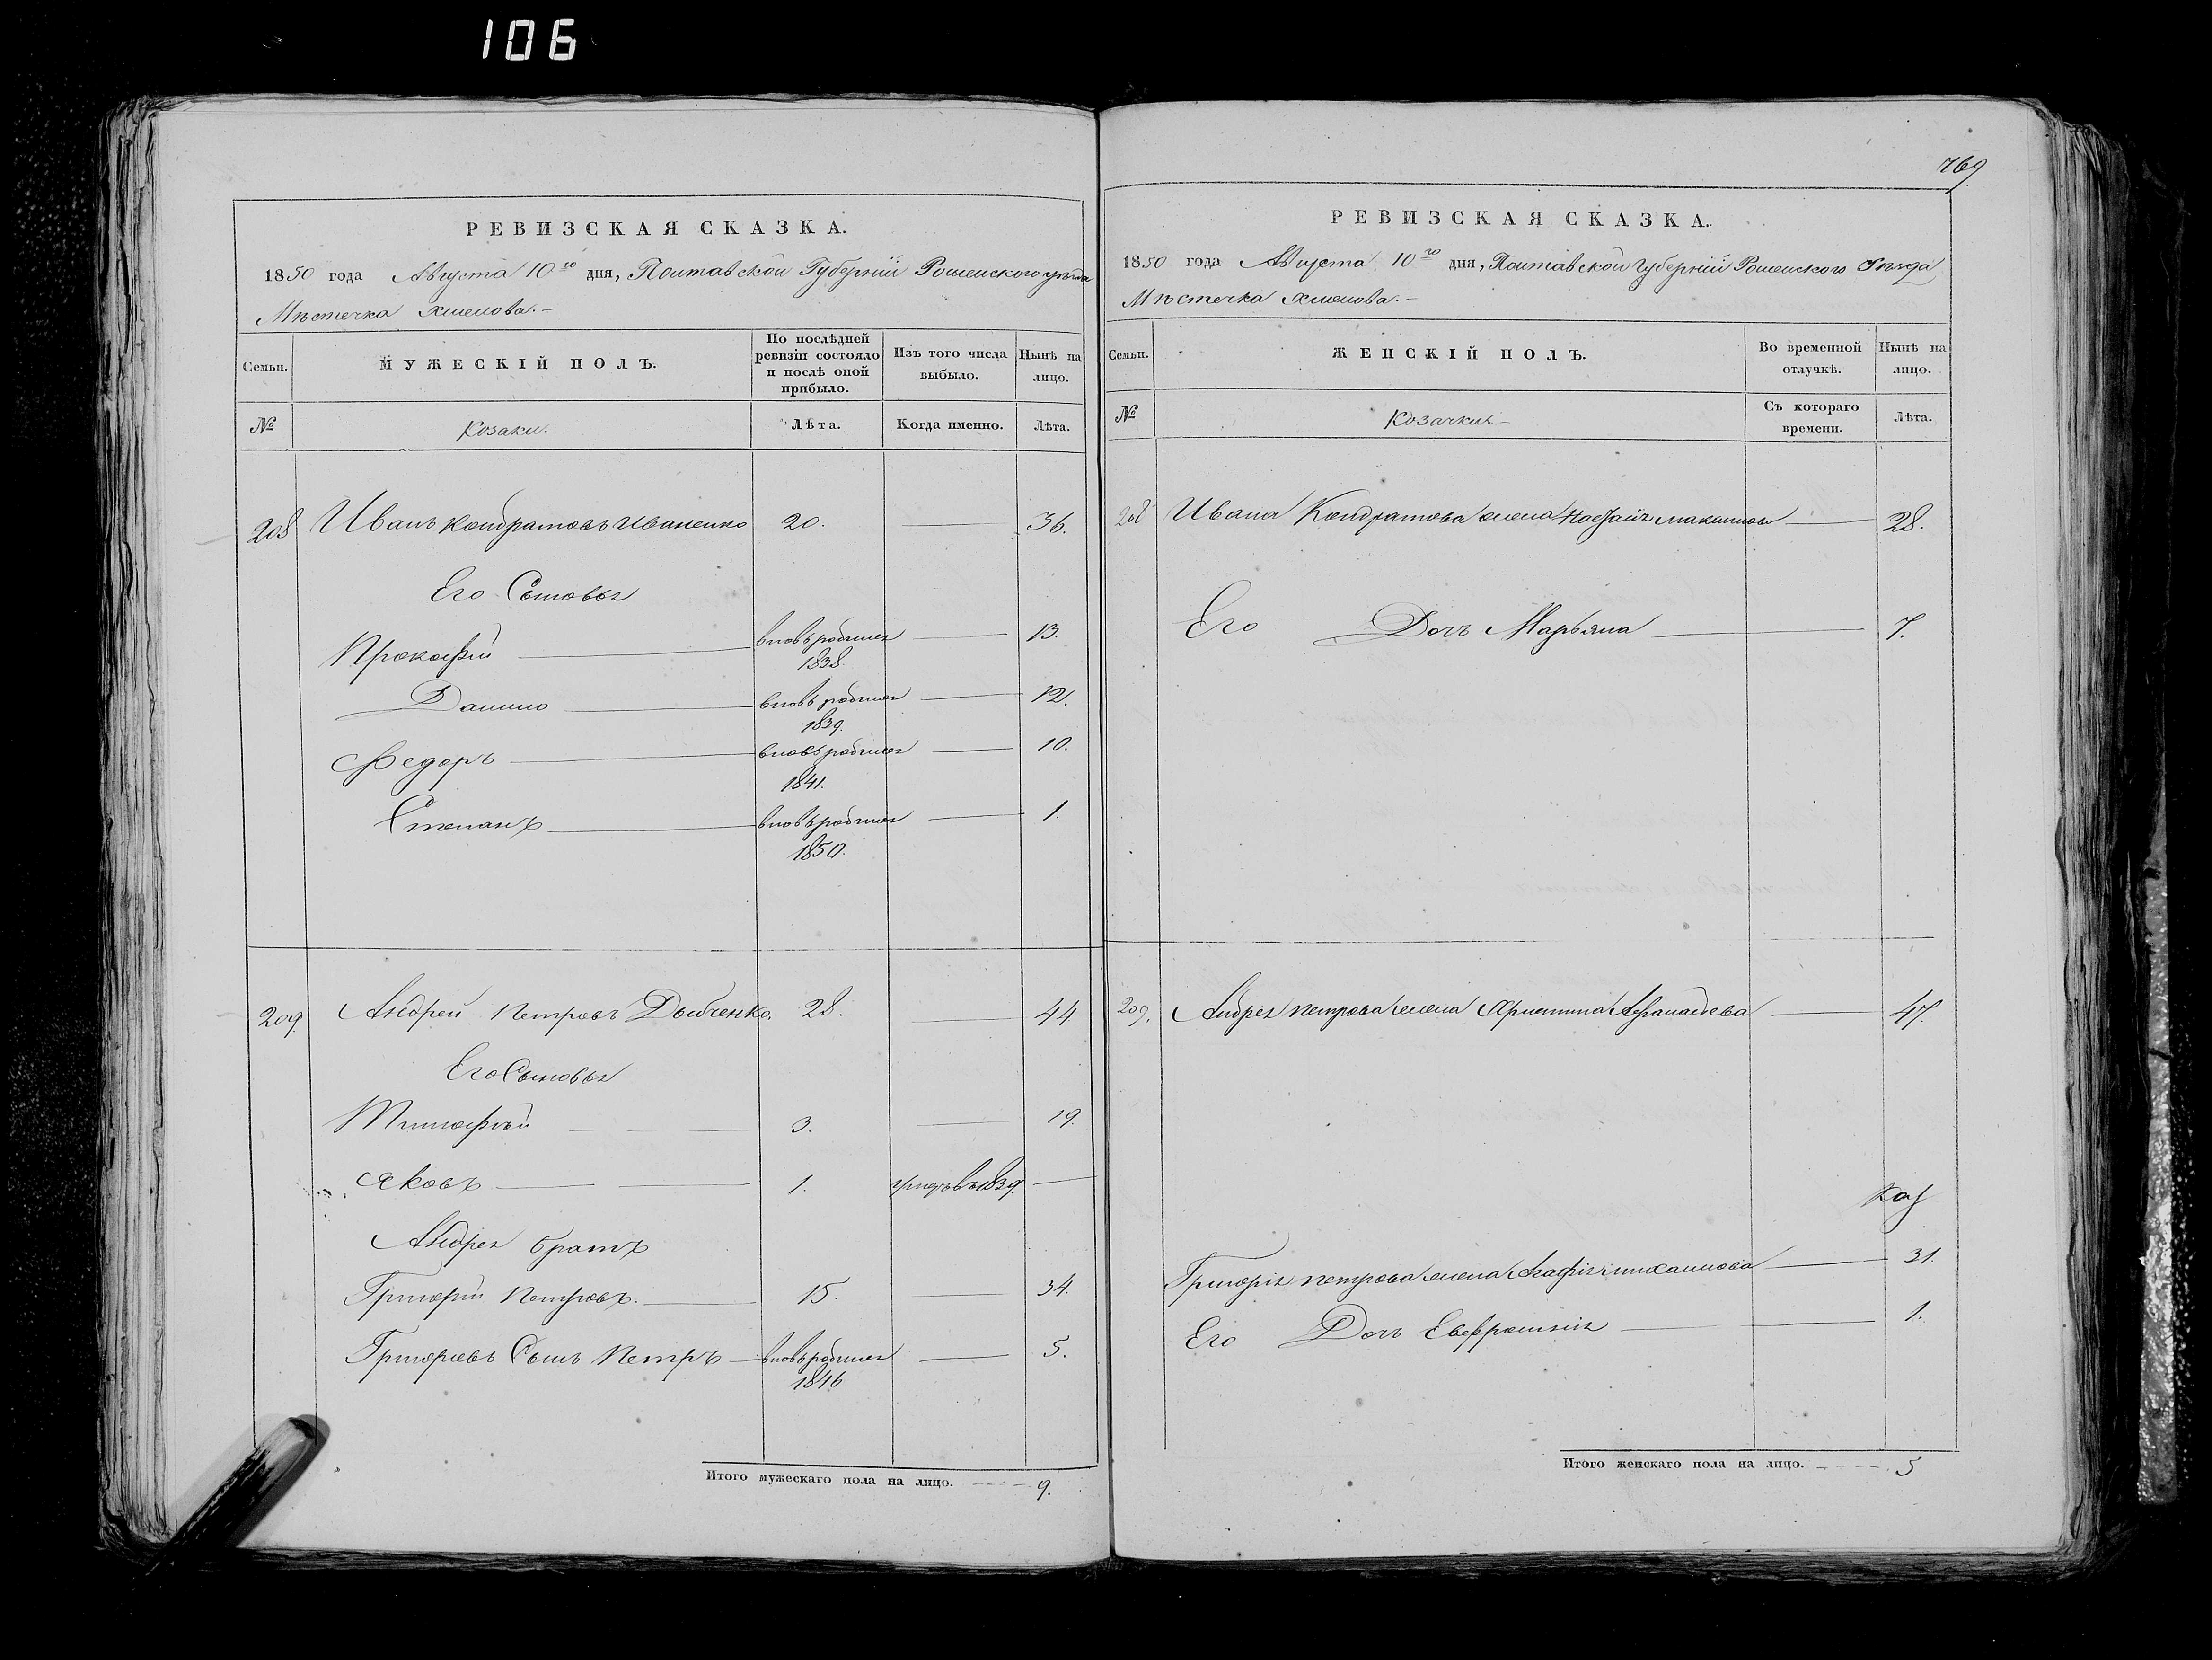 106
769
РЕВИЗСКАЯ СКАЗКА.
1850 года Августа 10го дня, Полтавской Губерніи Роменского уѣзда
Мѣстечка Хмелова.—
Семьи.
МУЖЕСКІЙ ПОЛЪ.
По послѣдней ревизіи состояло и послѣ оной прибыло.
Изъ того числа выбыло.
Нынѣ на лицо.
№
Козаки.
Лѣта.
Когда именно.
Лѣта.
208 Иванъ Кондратовъ Иваненко 20. 36.
Его Сыновья
Прокофій вновьродился 1838. 13.
Данило вновьродился 1839. 12.
Федоръ вновьродился 1841. 10.
Степанъ вновьродился 1850. 1.
209. Андрей Петровъ Дыбченко. 28. 44
Его Сыновья
Тимофѣй 3. 19.
Яковъ 1. въ 1839.
Андрея братъ
Григорій Петровъ. 15. 34.
Григорьевъ Сынъ Петръ вновьродился 1846 5.
Итого мужескаго пола на лицо. 9.
РЕВИЗСКАЯ СКАЗКА.
1850 года Августа 10го дня, Полтавской Губерніи Роменского Уѣзда
Мѣстечка Хмелова.—
Семьи.
ЖЕНСКІЙ ПОЛЪ.
Во временной отлучкѣ.
Нынѣ на лицо.
№
Козачки
Съ котораго времени.
Лѣта.
208 Ивана Кондратова жена Максимова 28.
Его Дочь Марьяна 7.
209. Андрея Петрова жена Христина 47.
Григорія Петрова жена Агафія Михайлова 31.
Его Дочь Евфросинія 1.
Итого женскаго пола на лицо. 5